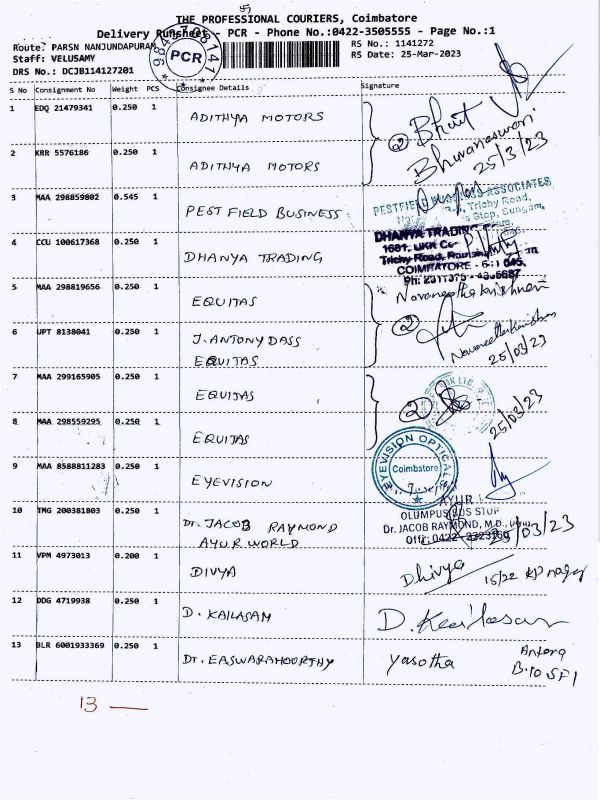 THE PROFESSIONAL COURIERS, Coimbatore
Delivery Runsheet - PCR - Phone No.:0422-3505555 - Page No.:1
Route: PARSN NANJUNDAPURAM
RS No.: 1141272
Staff: VELUSAMY
RS Date: 25-Mar-2023
DRS No.: DCJB114127201
PCR
S No Consignment No Weight PCS Consignee Details Signature
1 EDQ 21479341 0.250 1 ADITHYA MOTORS
Bhuvaneswari
25/3/23
2 KRR 5576186 0.250 1 ADITHYA MOTORS
3 MAA 298859802 0.545 1 PEST FIELD BUSINESS
PESTFIELD BUSINESS ASSOCIATES
Trichy Road,
Stop, Sungam,
4 CCU 100617368 0.250 1 DHANYA TRADING
DHANYA TRADING
1681, UKK
Trichy Road,
COIMBATORE - 641 045.
5 MAA 298819656 0.250 1 EQUITAS
Navaneetha Krishnan
6 UPT 8138041 0.250 1 J. ANTONY DASS
EQUITAS
2
Navaneetha Krishnan
25/03/23
7 MAA 299165905 0.250 1 EQUITAS
2
25/03/23
8 MAA 298559295 0.250 1 EQUITAS
9 MAA 8588811283 0.250 1 EYEVISION
EYEVISION OPTICALS
Coimbatore
10 TMG 200381803 0.250 1 Dr. JACOB RAYMOND
AYUR WORLD
AYUR
OLUMPUS BUS STOP
Dr. JACOB RAYMOND, M.D.,
Off: 0422-
25/03/23
11 VPM 4973013 0.200 1 DIVYA
Dhivya
15/22 KP nagar
12 DDG 4719938 0.250 1 D. KAILASAM
D. Kailasam
13 BLR 6001933369 0.250 1 Dr. EASWARAMOORTHY
Yasotha
Antony
13